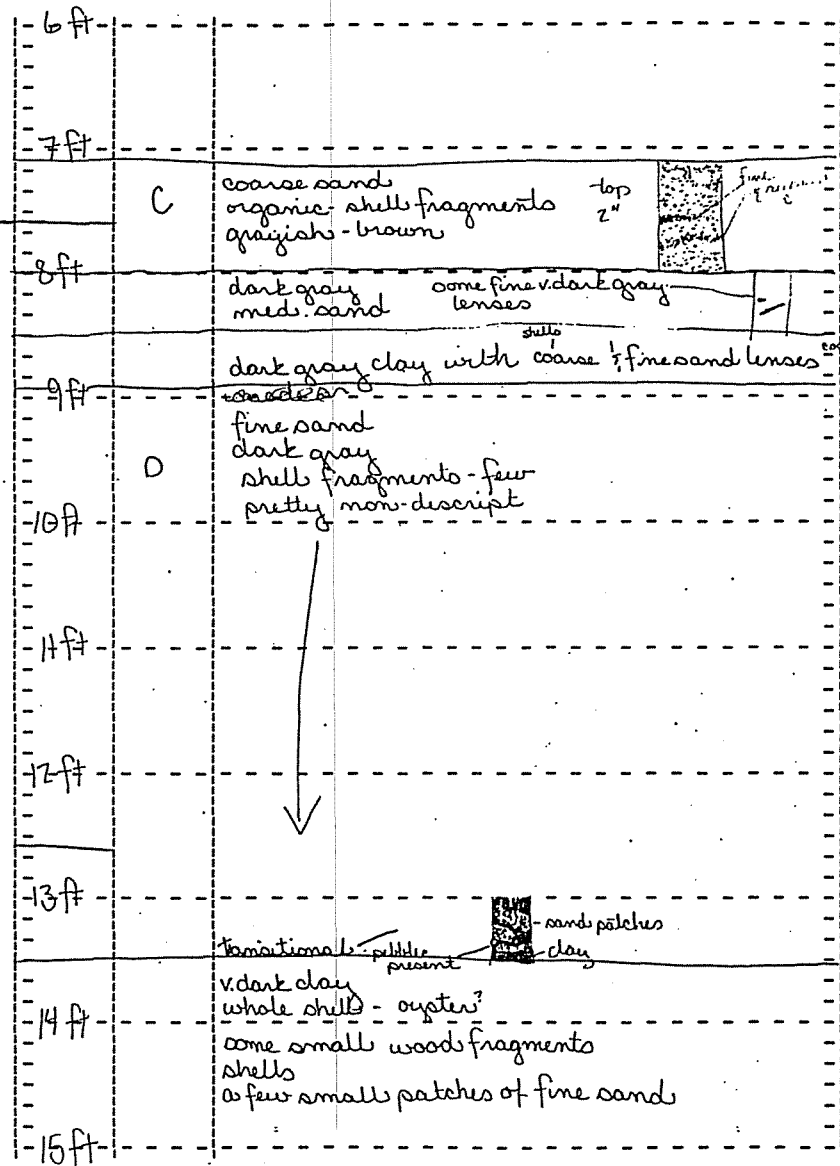 6 ft
7 ft
C
coarse sand
organic - shell fragments
grayish - brown
top
2"
fine
8 ft
dark gray
med. sand
some fine v. dark gray
lenses
shells
dark gray clay with coarse & fine sand lenses
9 ft
fine sand
D
dark gray
shell fragments - few
pretty non-descript
10 ft
11 ft
12 ft
13 ft
sand patches
transitional
pebble
present
clay
v. dark clay
whole shell - oyster?
14 ft
some small wood fragments
shells
a few small patches of fine sand
15 ft